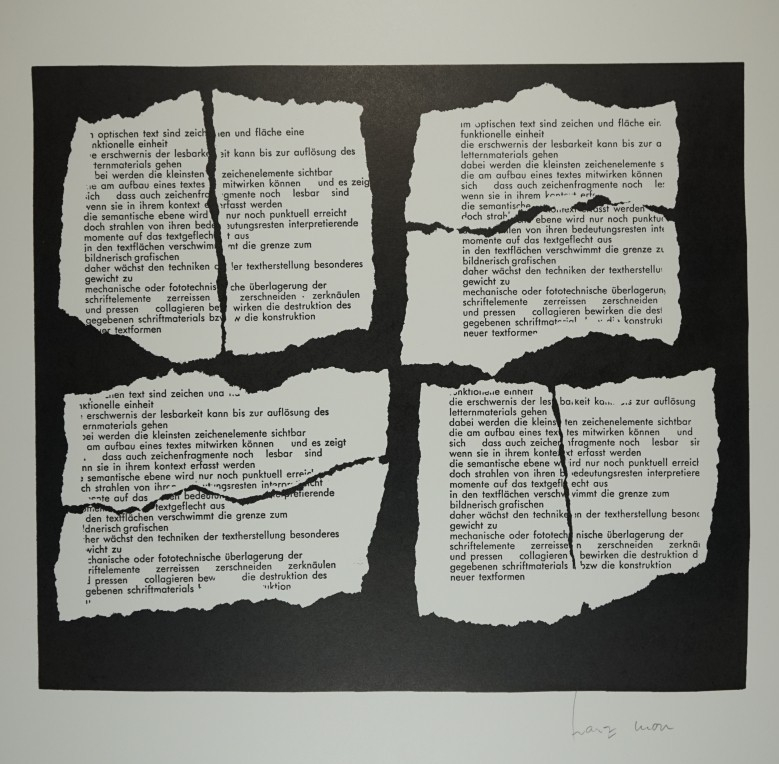 optischen text sind zeichen und fläche eine
nktionelle einheit
e erschwernis der lesbarkeit kann bis zur auflösung des
ternmaterials gehen
bei werden die kleinsten zeichenelemente sichtbar
ie am aufbau eines textes mitwirken können und es zeig
sich dass auch zeichenfragmente noch lesbar sind
wenn sie in ihrem kontext erfasst werden
die semantische ebene wird nur noch punktuell erreicht
doch strahlen von ihren bedeutungsresten interpretierende
momente auf das textgeflecht aus
in den textflächen verschwimmt die grenze zum
bildnerisch grafischen
daher wächst den techniken der textherstellung besonderes
gewicht zu
mechanische oder fototechnische überlagerung der
schriftelemente zerreissen zerschneiden zerknäulen
und pressen collagieren bewirken die destruktion des
gegebenen schriftmaterials bzw die konstruktion
uer textformen
im optischen text sind zeichen und fläche ein
funktionelle einheit
die erschwernis der lesbarkeit kann bis zur a
letternmaterials gehen
dabei werden die kleinsten zeichenelemente s
die am aufbau eines textes mitwirken können
sich dass auch zeichenfragmente noch les
wenn sie in ihrem kontext erf
kontext erfasst werden
die semantische ebene wird nur noch punktu
doch strahlen von ihren bedeutungsresten inte
momente auf das textgeflecht aus
in den textflächen verschwimmt die grenze zu
bildnerisch grafischen
daher wächst den techniken der textherstellu
gewicht zu
mechanische oder fototechnische überlagerun
schriftelemente zerreissen zerschneiden
und pressen collagieren bewirken die dest
gegebenen schriftmaterial die konstrukt
neuer textformen
hen text sind zeichen und
nktionelle einheit
erschwernis der lesbarkeit kann bis zur auflösung des
ernmaterials gehen
bei werden die kleinsten zeichenelemente sichtbar
am aufbau eines textes mitwirken können und es zeigt
dass auch zeichenfragmente noch lesbar sind
nn sie in ihrem kontext erfasst werden
semantische ebene wird nur noch punktuell erreicht
ch strahlen von ihren bedeutungsresten interpretierende
mente auf das textgeflecht aus
den textflächen verschwimmt die grenze zum
dnerisch grafischen
her wächst den techniken der textherstellung besonderes
wicht zu
chanische oder fototechnische überlagerung der
riftelemente zerreissen zerschneiden zerknäulen
d pressen collagieren bew die destruktion des
gebenen schriftmaterials uktion
unktionelle einheit
die erschwernis der lesbarkeit kann bis zur auflösung
letternmaterials gehen
dabei werden die kleinsten zeichenelemente sichtbar
die am aufbau eines textes mitwirken können und
sich dass auch zeichenfragmente noch lesbar sin
wenn sie in ihrem kontext erfasst werden
die semantische ebene wird nur noch punktuell erreicl
doch strahlen von ihren bedeutungsresten interpretiere
momente auf das textgeflecht aus
in den textflächen verschwimmt die grenze zum
bildnerisch grafischen
daher wächst den techniken der textherstellung besond
gewicht zu
mechanische oder fototechnische überlagerung der
schriftelemente zerreissen zerschneiden zerknäu
und pressen collagieren bewirken die destruktion d
gegebenen schriftmaterials bzw die konstruktion
neuer textformen
franz mon